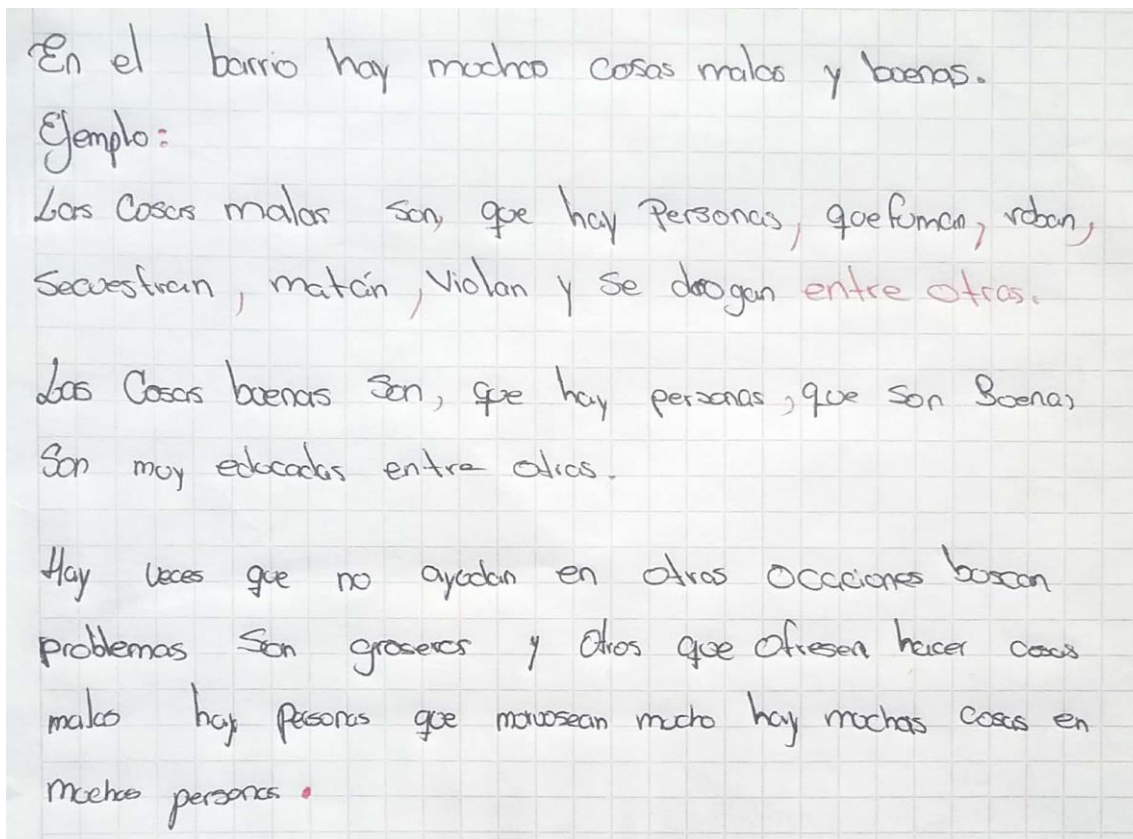 En el barrio hay muchas cosas malas y buenas.
Ejemplo:
Las Cosas malas son, que hay Personas, que fuman, roban,
Secuestran, matán, Violan y Se drogan entre otras.
Las Cosas buenas Son, que hay personas, que son Buenas
Son muy educadas entre otros.
Hay veces que no ayudan en otros occaciones buscan
problemas Son groseros y Otros que Ofresen hacer cosas
malas hay Personas que morvosean mucho hay muchas cosas en
muchas personas.